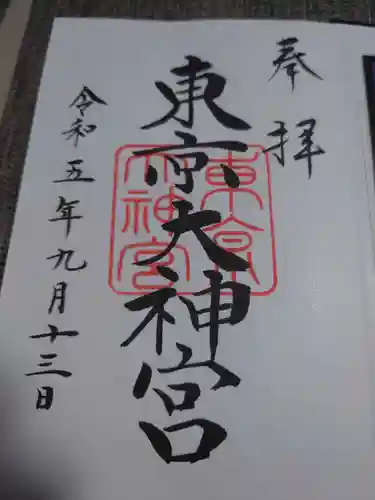 奉拝
東京大神宮
東京大神宮
令和五年九月十三日